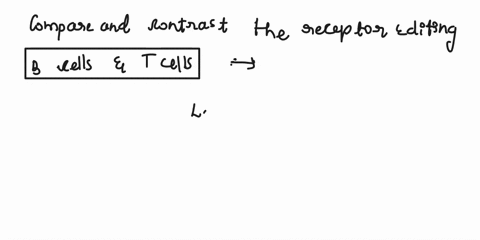 Compare and contrast the receptor editing
B cells & T cells →
L.